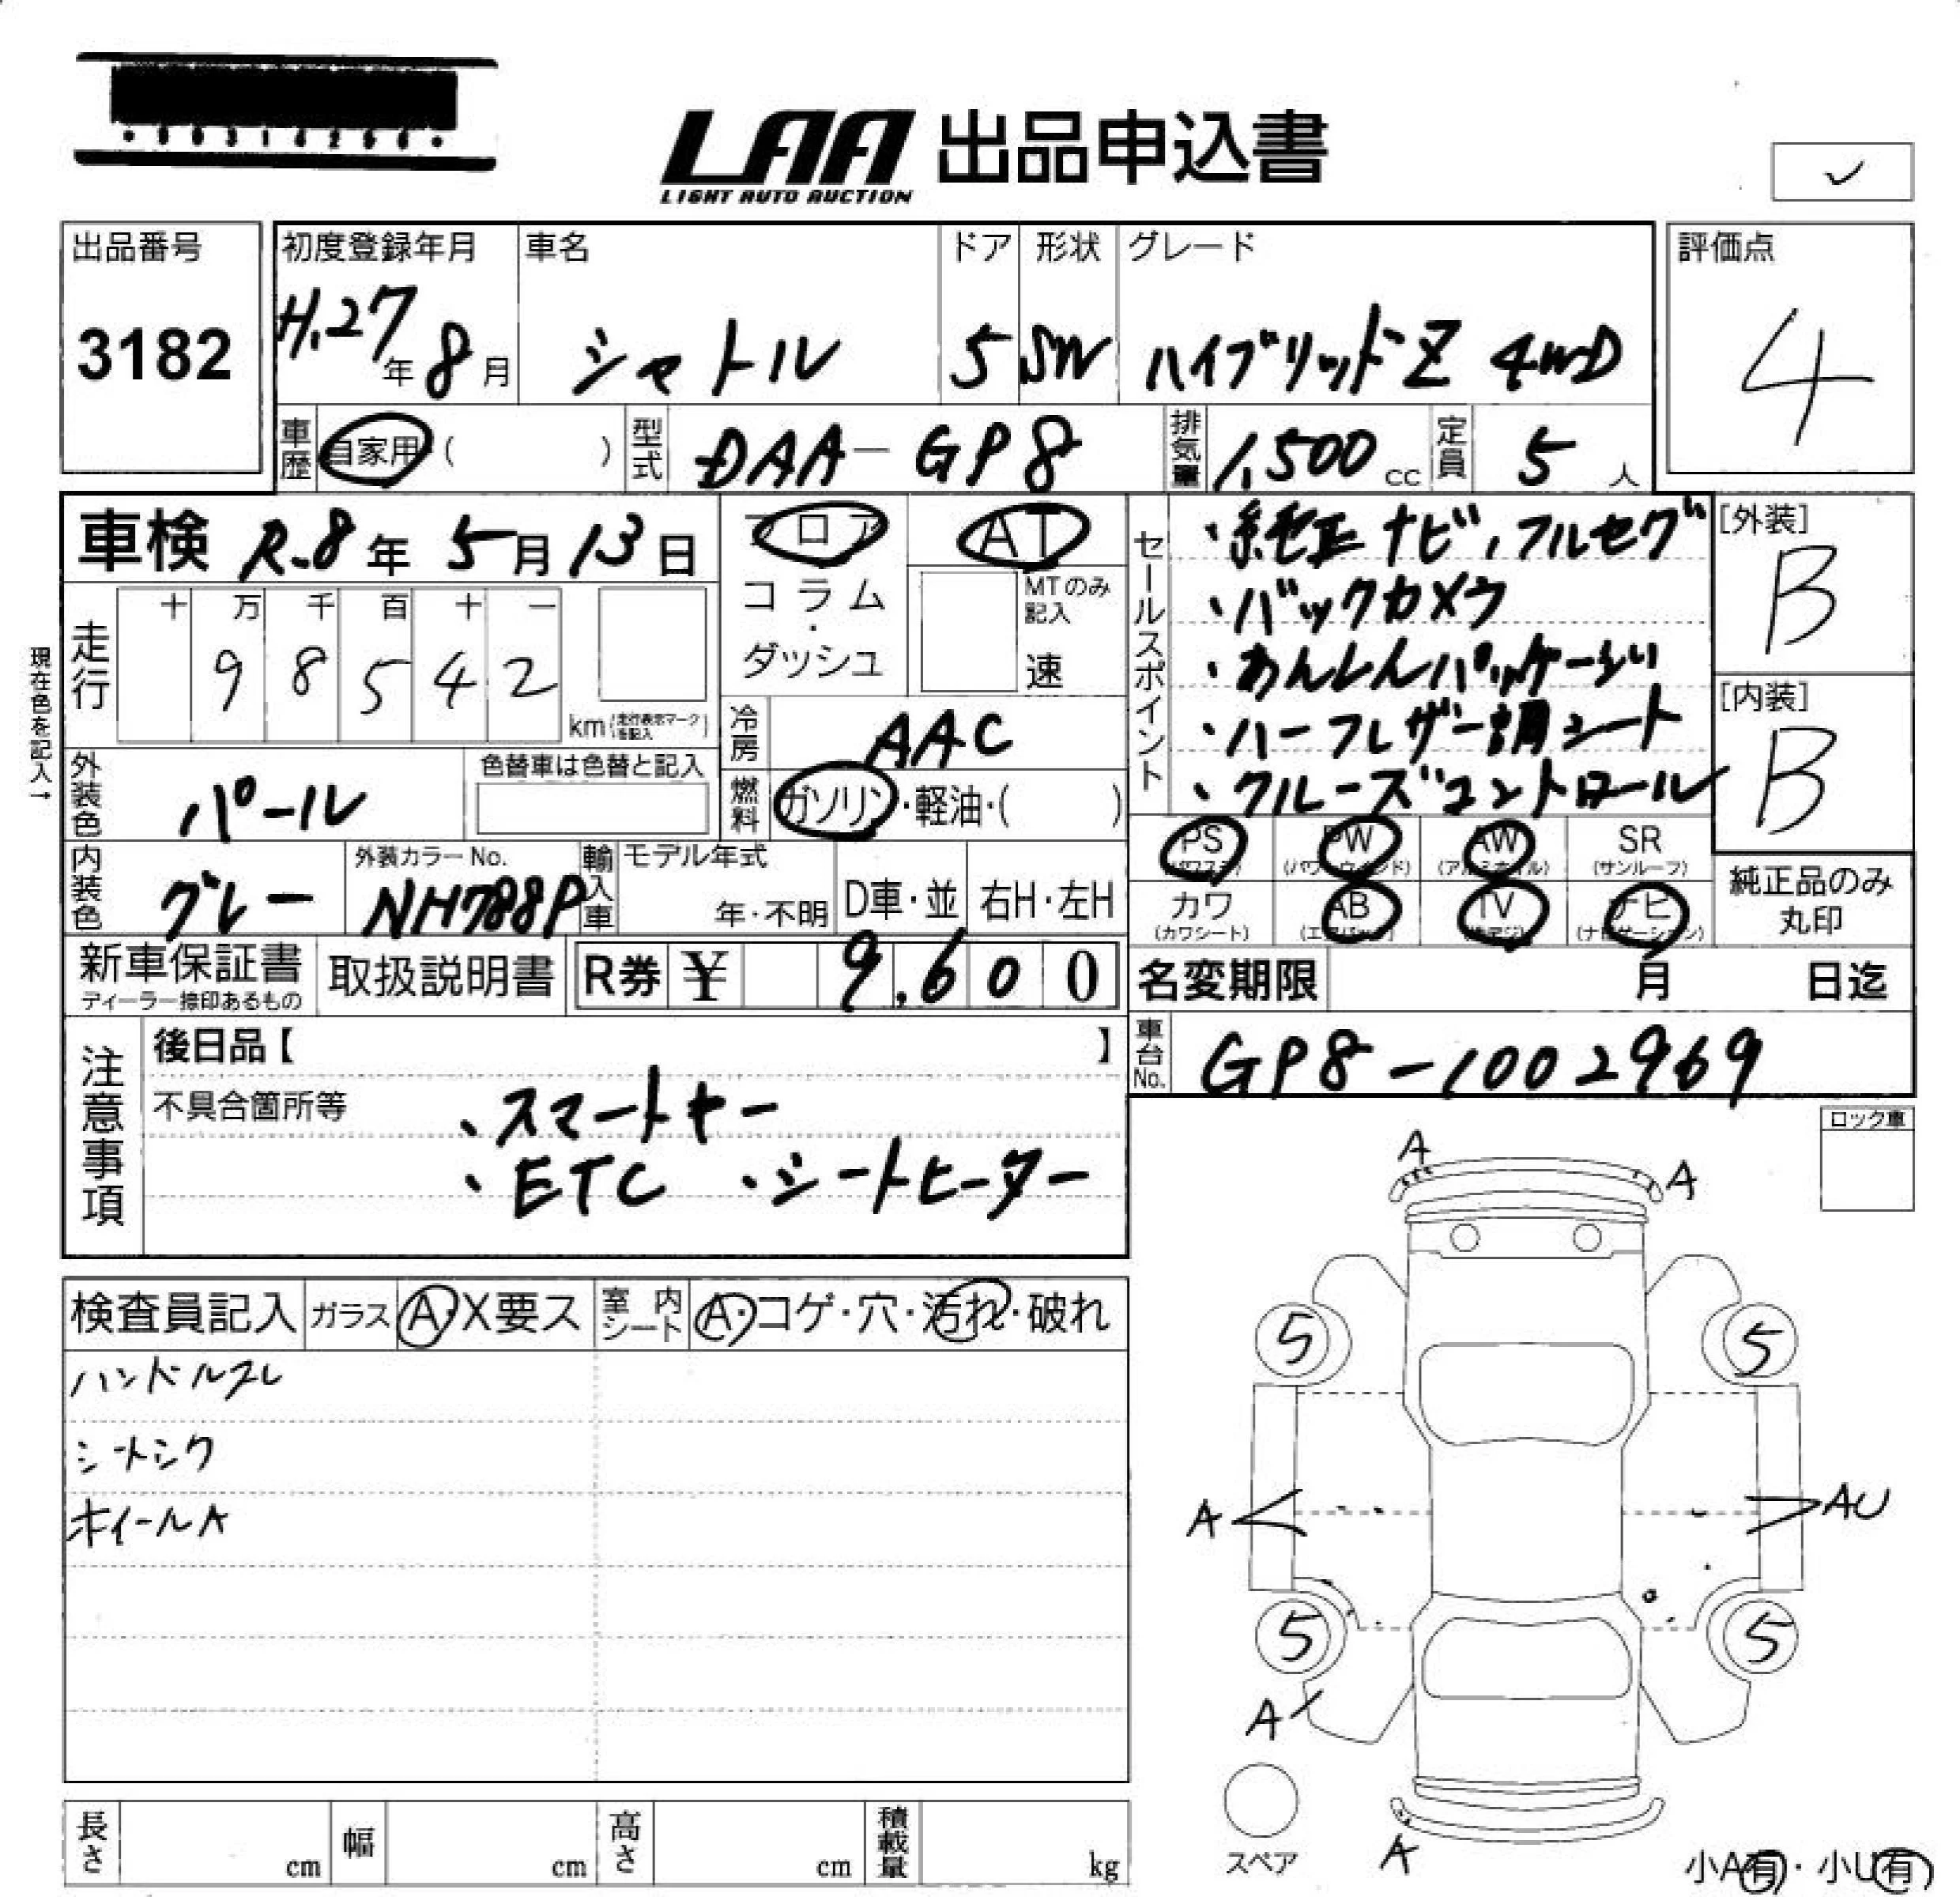 LAA 出品申込書
LIGHT AUTO AUCTION
出品番号
3182
初度登録年月
H.27年 8月
車名
シャトル
ドア
5
形状
SW
グレード
ハイブリッドZ 4WD
評価点
4
車歴 自家用 ( )
型式 DAA-GP8
排気量 1,500 cc
定員 5 人
車検 R.8年 5月 13日
フロア
コラム
・
ダッシュ
AT
MTのみ記入
速
現在色を記入→
走行
十 万 千 百 十 一
9 8 5 4 2
km (走行表示マークを記入)
冷房 AAC
燃料 ガソリン・軽油・( )
外装色 パール
色替車は色替と記入
内装色 グレー
外装カラーNo.
NH788P
輸入車
モデル年式
年・不明
D車・並
右H・左H
セールスポイント
・純正ナビ,フルセグ
・バックカメラ
・あんしんパッケージ
・ハーフレザー調シート
・クルーズコントロール
[外装]
B
[内装]
B
PS (パワステ)
PW (パワーウインド)
AW (アルミホイル)
SR (サンルーフ)
カワ (カワシート)
AB (エアバッグ)
TV (地デジ)
ナビ (ナビゲーション)
純正品のみ
丸印
新車保証書
ディーラー捺印あるもの
取扱説明書
R券 ¥ 9,600
名変期限 月 日迄
車台No. GP8-1002969
注意事項
後日品【 】
不具合箇所等
・スマートキー
・ETC ・シートヒーター
ロック車
検査員記入
ガラス A・X要ス
室内シート A・コゲ・穴・汚れ・破れ
ハンドルスレ
シートシワ
ホイールA
A
A
5
5
A
AU
5
5
A
A
スペア
小A有・小U有
長さ cm
幅 cm
高さ cm
積載量 kg